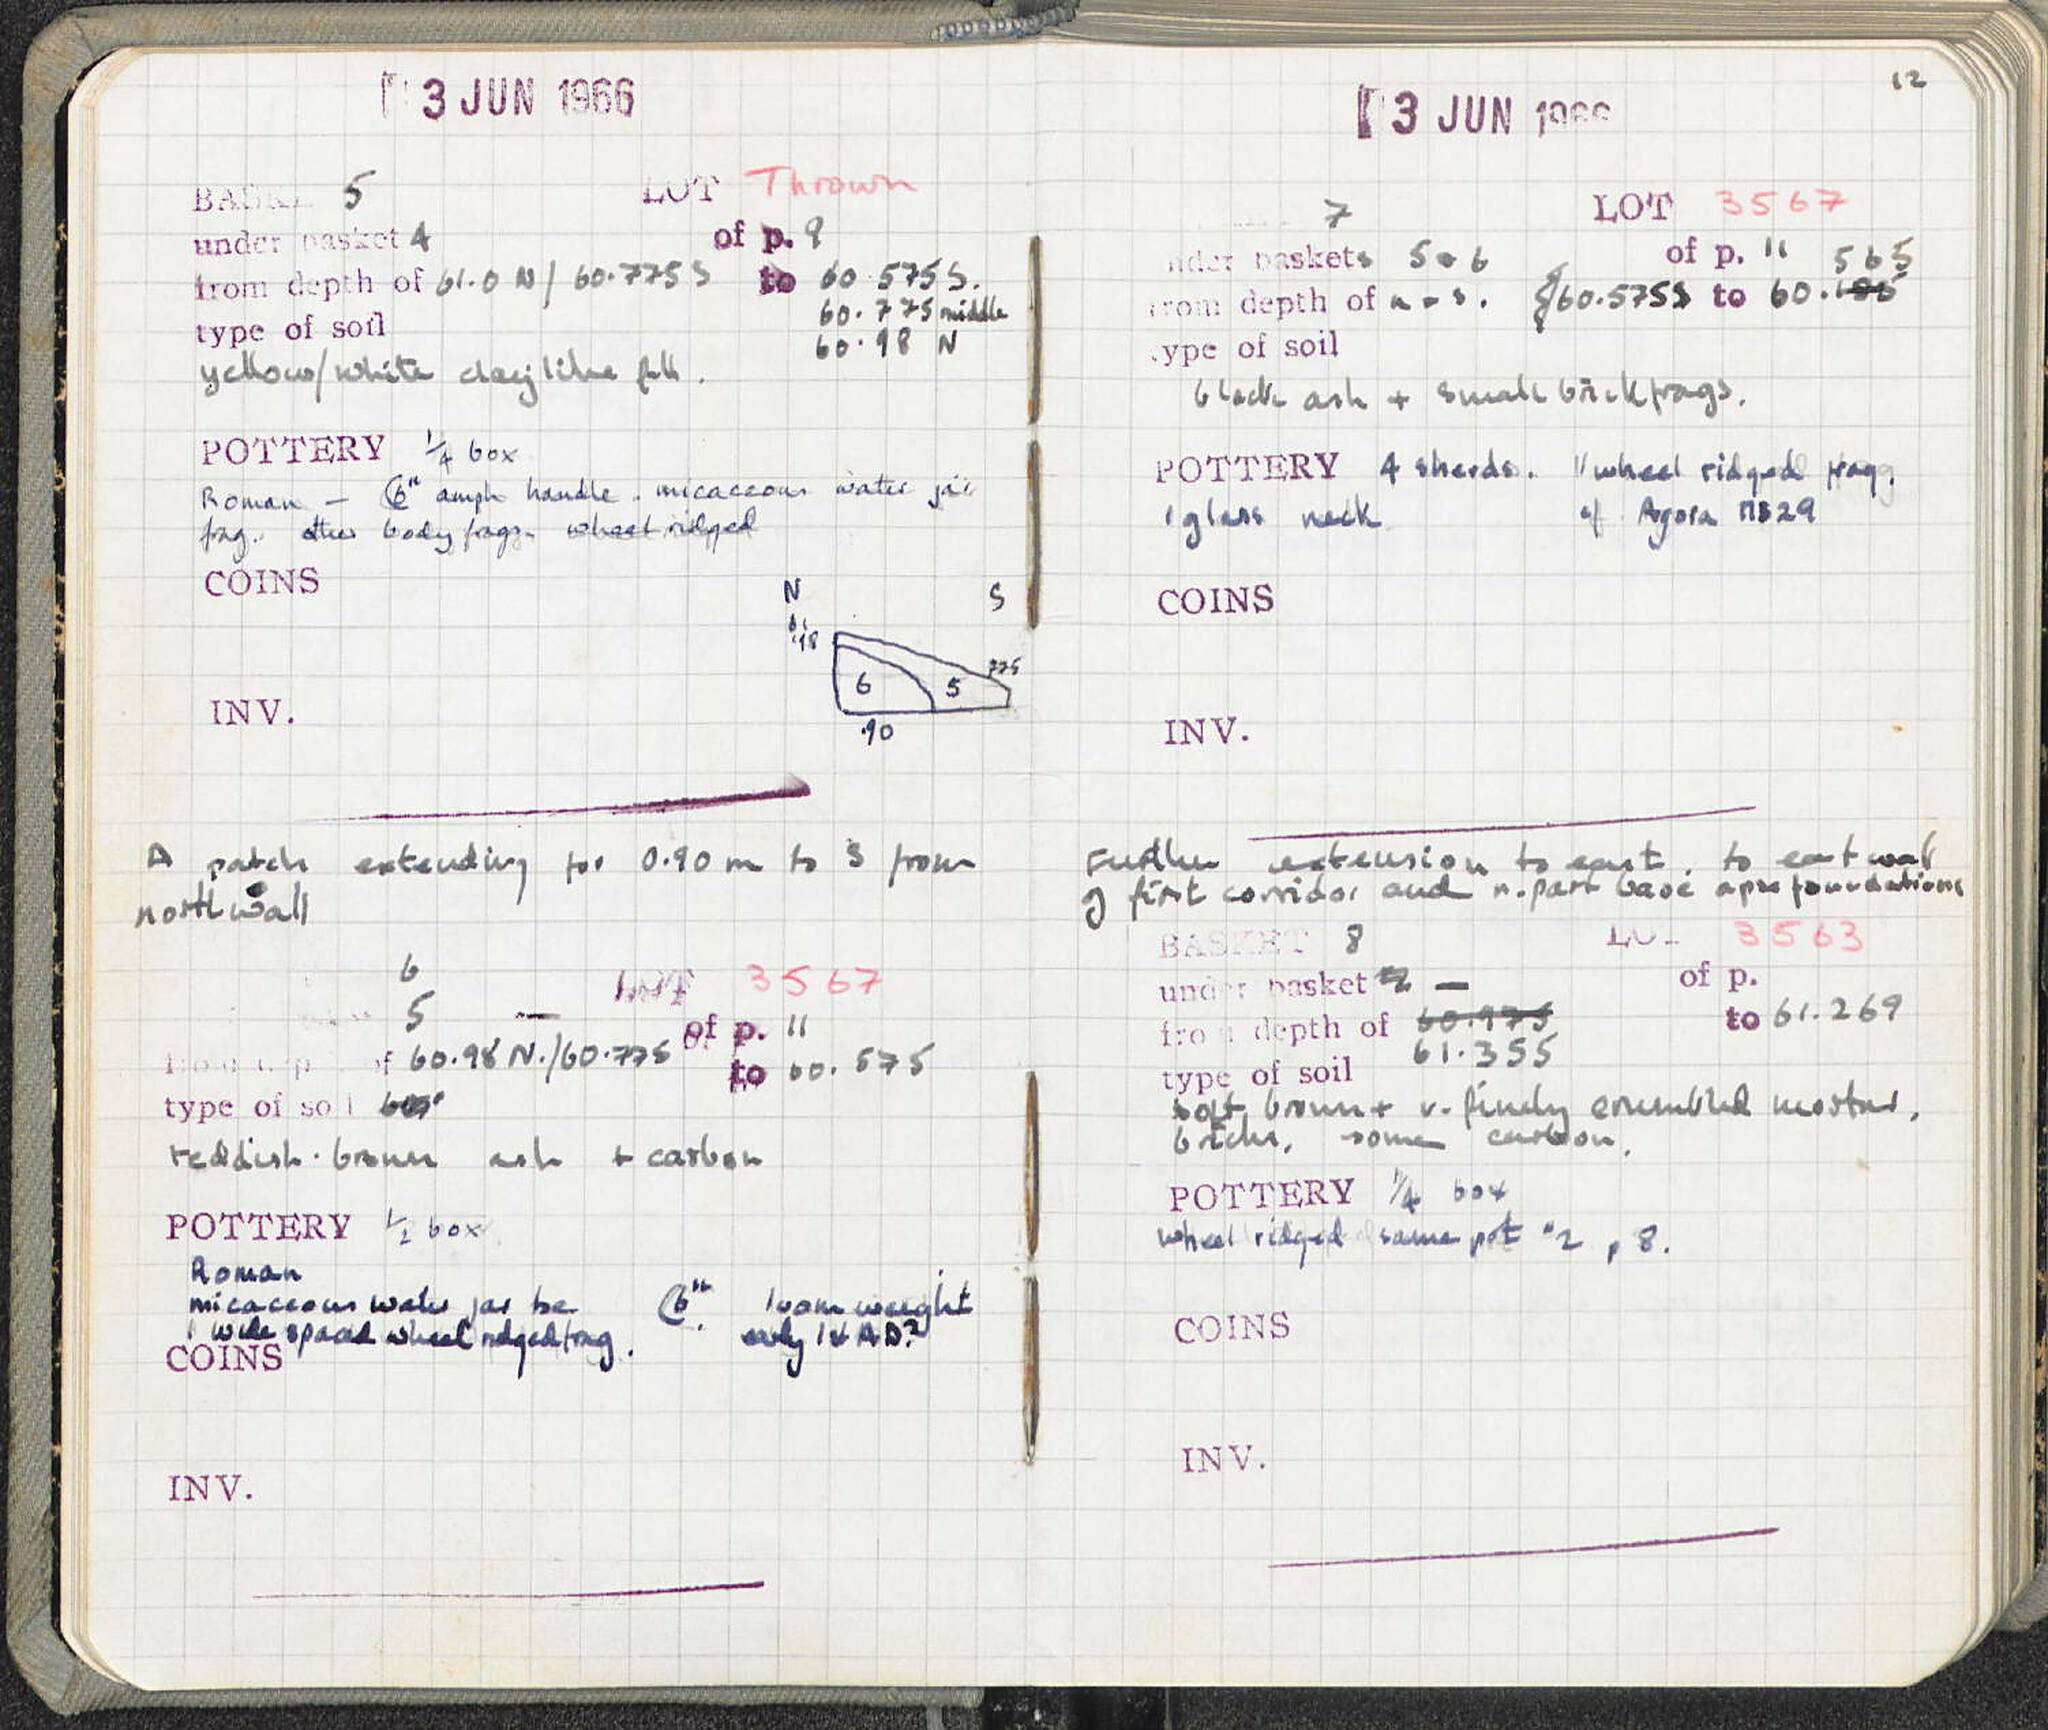 3 JUN 1966
BASKE 5 LOT Thrown
under basket 4 of p. 9
from depth of 61.0 N / 60.775 S to 60.575 S.
60.775 middle
type of soil
60.98 N
yellow/white clay like fill.
POTTERY 1/4 box
Roman - amph handle. micaceous water jar
frag. other body frags. wheel ridged
COINS
N S
.98
775
6 5
.90
INV.
A patch extending for 0.90 m to S from
north wall
6 LOT 3567
5 — of p. 11
of 60.98 N./60.775 to 60.575
type of soil
reddish-brown ash + carbon
POTTERY 1/2 box
Roman
micaceous water jar toe loom weight
1 wide spaced wheel ridged frag. early 1st AD?
COINS
INV.
12
3 JUN 1966
7 LOT 3567
under baskets 5 + 6 of p. 11 565
from depth of n - s. 60.575 S to 60.
type of soil
black ash + small brick frags.
POTTERY 4 sherds. wheel ridged frag.
1 glass neck cf Agora M329
COINS
INV.
Further extension to east, to east wall
of first corridor and n. part base apse foundations
BASKET 8 LOT 3563
under basket — of p.
from depth of 60.975 to 61.269
61.355
type of soil
soft brown + v. finely crumbled mortar,
bricks, some carbon.
POTTERY 1/4 box
wheel ridged same pot "2 p 8.
COINS
INV.